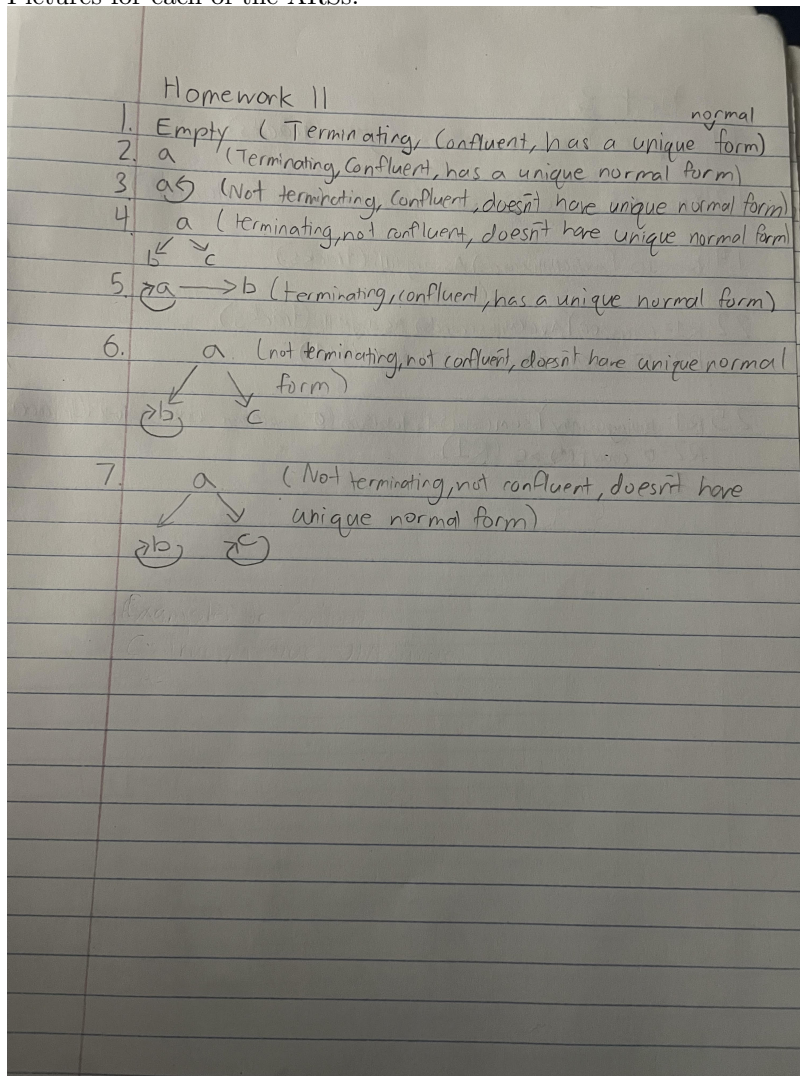 Pictures for each of the ARSs:
Homework 11
normal
1. Empty ( Terminating, Confluent, has a unique form)
2. a (Terminating, Confluent, has a unique normal form)
3. a (Not terminating, Confluent, doesn't have unique normal form)
4. a (terminating, not confluent, doesn't have unique normal form)
b c
5. a b (terminating, confluent, has a unique normal form)
6. a (not terminating, not confluent, doesn't have unique normal
form)
b c
7. a (Not terminating, not confluent, doesn't have
unique normal form)
b c